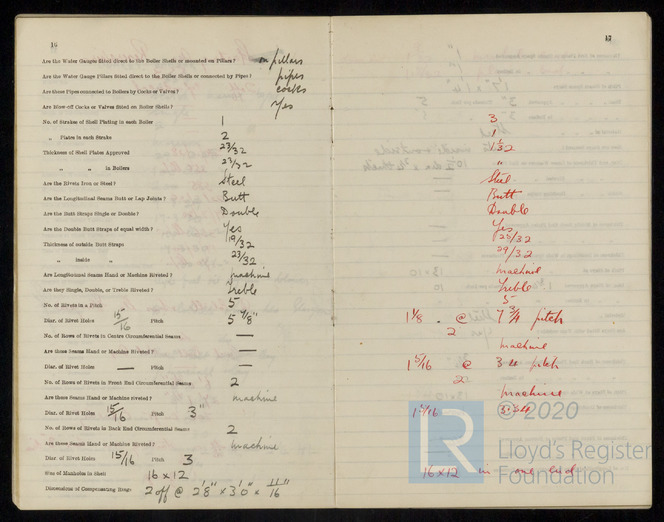 16
Are the Water Gauges fitted direct to the Boiler Shells or mounted on Pillars? on pillars
Are the Water Gauge Pillars fitted direct to the Boiler Shells or connected by Pipes? pipes
Are these Pipes connected to Boilers by Cocks or Valves? cocks
Are Blow-off Cocks or Valves fitted on Boiler Shells? Yes
No. of Strakes of Shell Plating in each Boiler 1
„ Plates in each Strake 2
Thickness of Shell Plates Approved 23/32
„ „ in Boilers 23/32
Are the Rivets Iron or Steel? Steel
Are the Longitudinal Seams Butt or Lap Joints? Butt
Are the Butt Straps Single or Double? Double
Are the Double Butt Straps of equal width? Yes
Thickness of outside Butt Straps 19/32
„ inside „ 23/32
Are Longitudinal Seams Hand or Machine Riveted? machine
Are they Single, Double, or Treble Riveted? Treble
No. of Rivets in a Pitch 5
Diar. of Rivet Holes 15/16 Pitch
No. of Rows of Rivets in Centre Circumferential Seams —
Are these Seams Hand or Machine Riveted? —
Diar. of Rivet Holes — Pitch —
No. of Rows of Rivets in Front End Circumferential Seams 2
Are these Seams Hand or Machine riveted? machine
Diar. of Rivet Holes 15/16 Pitch 3"
No. of Rows of Rivets in Back End Circumferential Seams 2
Are these Seams Hand or Machine Riveted? machine
Diar. of Rivet Holes 15/16 Pitch 3
Size of Manholes in Shell 16 x 12
Dimensions of Compensating Rings 2 off @ 2'8" x 3'0" x 11/16"
17
3
1
„
Steel
Butt
Double
Yes
25/32
29/32
machine
Treble
5
1 1/8 . @ 7 3/4 pitch
2
machine
1 5/16 @ pitch
2
machine
16 x 12 in one end
© 2020
Lloyd's Register
Foundation